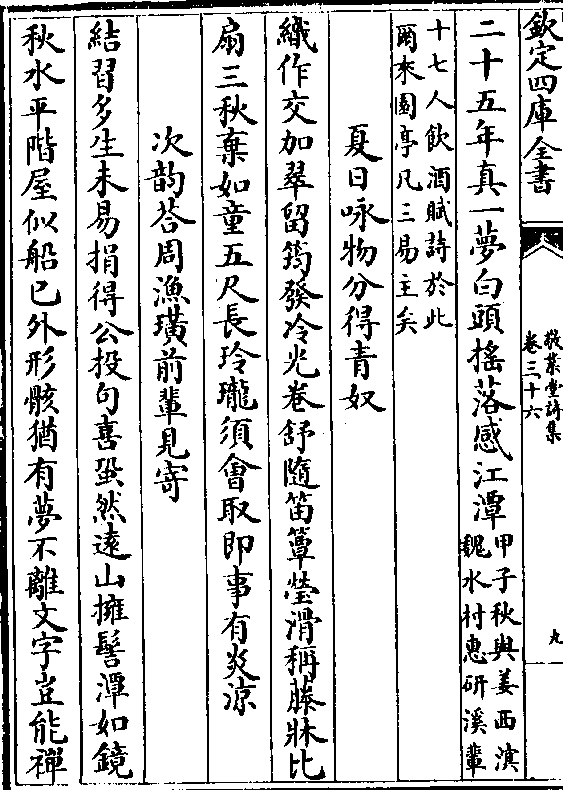 欽定四庫全書
敬業堂詩集
卷三十六
九
二十五年真一夢白頭搖落感江潭甲子秋與姜西溟
魏水村惠研溪輩
十七人飲酒賦詩於此
爾來園亭凡三易主矣
夏日咏物分得青奴
織作交加翠留筠發冷光卷舒隨笛簟瑩滑稱藤牀比
扇三秋棄如童五尺長玲瓏須會取即事有炎涼
次韵荅周漁璜前輩見寄
結習多生未易捐得公投句喜蛩然遠山擁髻潭如鏡
秋水平階屋似船已外形骸猶有夢不離文字豈能禪